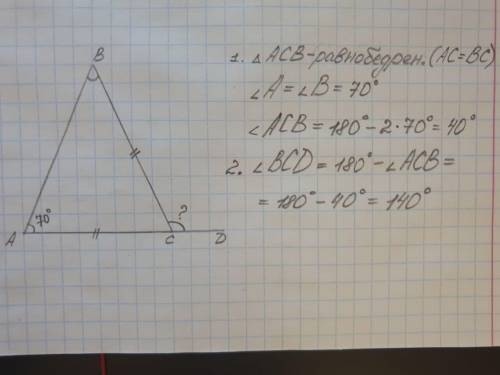 B
70°
?
A
C
D
1. △ACB-равнобедрен. (AC=BC)
∠A=∠B=70°
∠ACB=180°-2·70°=40°
2. ∠BCD=180°-∠ACB=
=180°-40°=140°